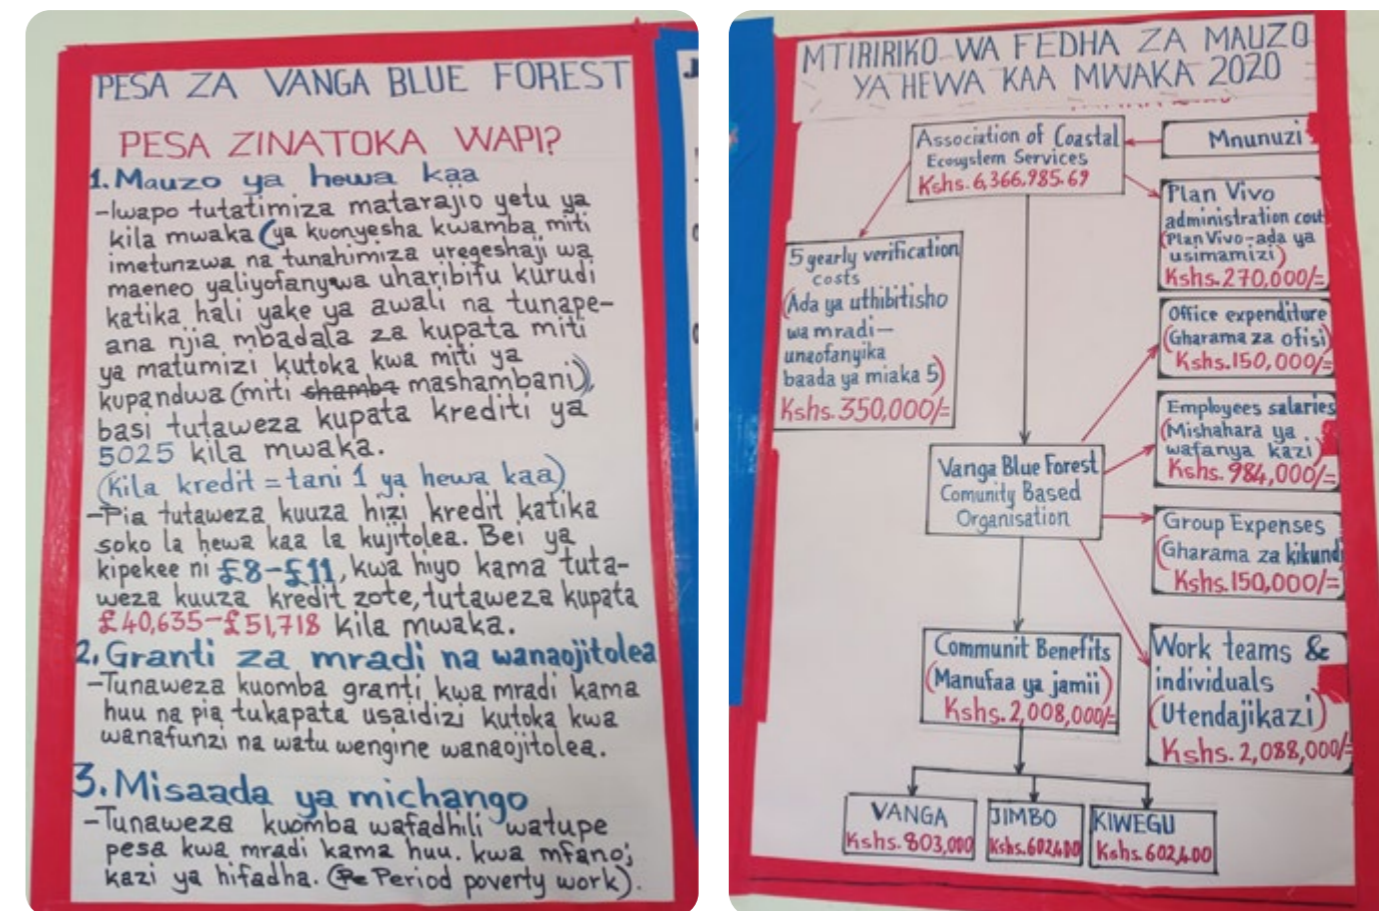 PESA ZA VANGA BLUE FOREST
PESA ZINATOKA WAPI?
1. Mauzo ya hewa kaa
-Iwapo tutatimiza matarajio yetu ya
kila mwaka (ya kuonyesha kwamba miti
imetunzwa na tunahimiza uregeshaji wa
maeneo yaliyofanywa uharibifu kurudi
katika hali yake ya awali na tunape-
ana njia mbadala za kupata miti
ya matumizi kutoka kwa miti ya
kupandwa (miti shamba mashambani)),
basi tutaweza kupata krediti ya
5025 kila mwaka.
(Kila kredit = tani 1 ya hewa kaa)
-Pia tutaweza kuuza hizi kredit katika
soko la hewa kaa la kujitolea. Bei ya
kipekee ni £8-£11, kwa hiyo kama tuta-
weza kuuza kredit zote, tutaweza kupata
£40,635-£51,718 kila mwaka.
2. Granti za mradi na wanaojitolea
-Tunaweza kuomba granti kwa mradi kama
huu na pia tukapata usaidizi kutoka kwa
wanafunzi na watu wengine wanaojitolea.
3. Misaada ya michango
-Tunaweza kuomba wafadhili watupe
pesa kwa mradi kama huu. kwa mfano;
kazi ya hifadha. (Pe Period poverty work).
MTIRIRIKO WA FEDHA ZA MAUZO
YA HEWA KAA MWAKA 2020
Association of Coastal
Ecosystem Services
Kshs. 6,366,985.69
Mnunuzi
Plan Vivo
administration cost
(Plan Vivo-ada ya
usimamizi)
Kshs. 270,000/=
5 yearly verification
costs
(Ada ya uthibitisho
wa mradi-
unaofanyika
baada ya miaka 5)
Kshs. 350,000/=
Office expenditure
(Gharama za ofisi)
Kshs. 150,000/=
Employees salaries
(Mishahara ya
wafanya kazi)
Kshs. 984,000/=
Vanga Blue Forest
Comunity Based
Organisation
Group Expenses
(Gharama za kikundi
Kshs. 150,000/=
Work teams &
individuals
(Utendajikazi)
Kshs. 2,088,000/=
Communit Benefits
(Manufaa ya jamii)
Kshs. 2,008,000/=
VANGA
Kshs. 803,000
JIMBO
Kshs. 602,400
KIWEGU
Kshs. 602,400